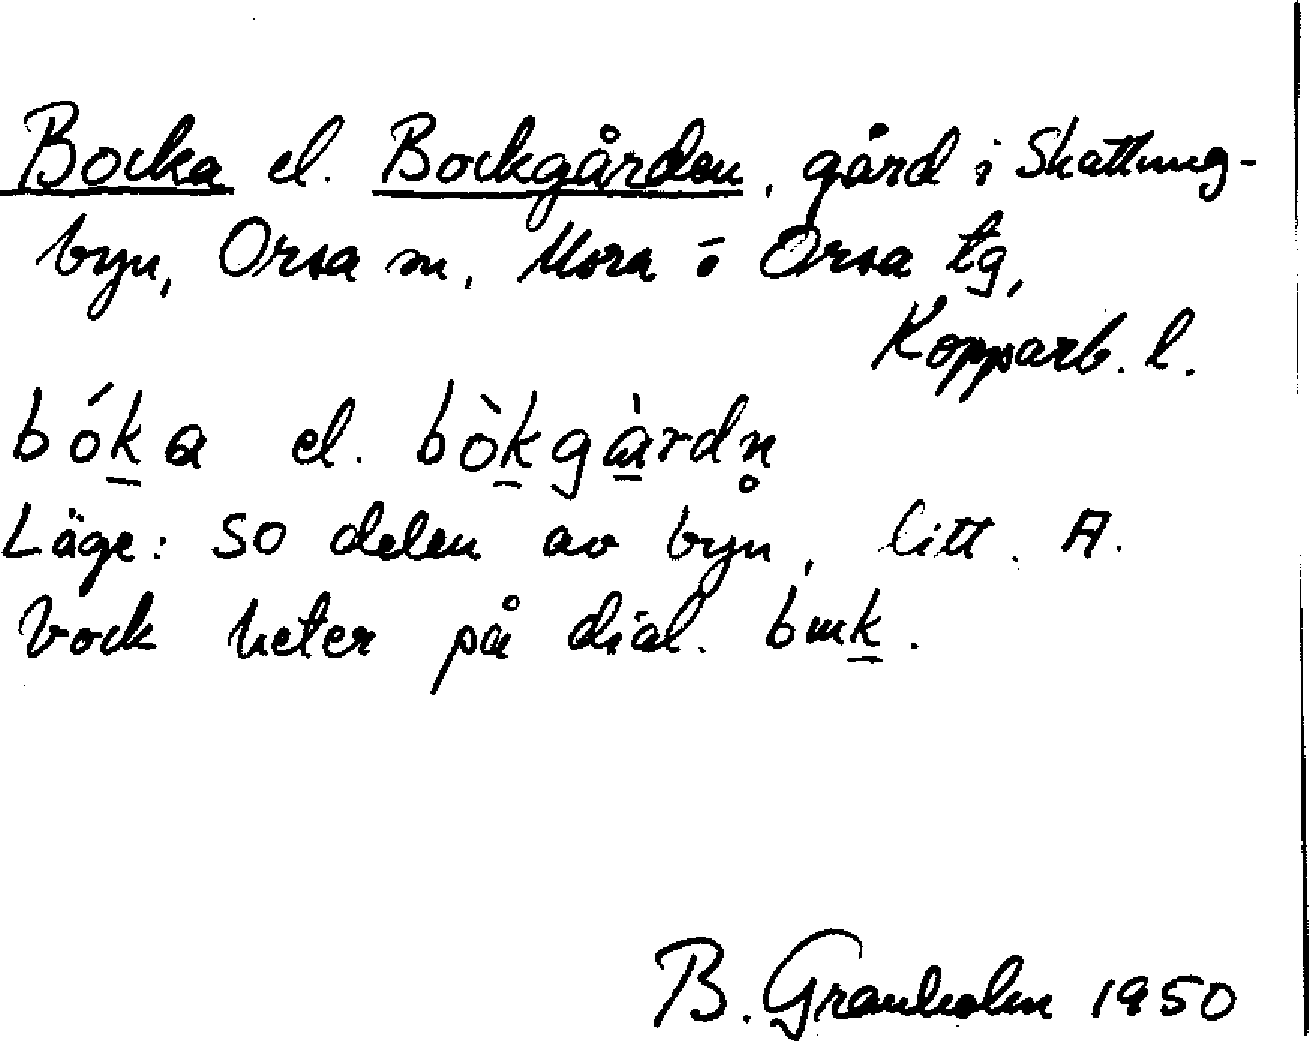 Bocka el. Bockgården, gård i Skattung-
byn, Orsa sn, Mora o Orsa tg,
Kopparb. l.
bók̲a el. bòk̲gå̲̀rdn̥
Läge: SO delen av byn, litt. A.
bock heter på dial. buk̲.
B. Granholm 1950